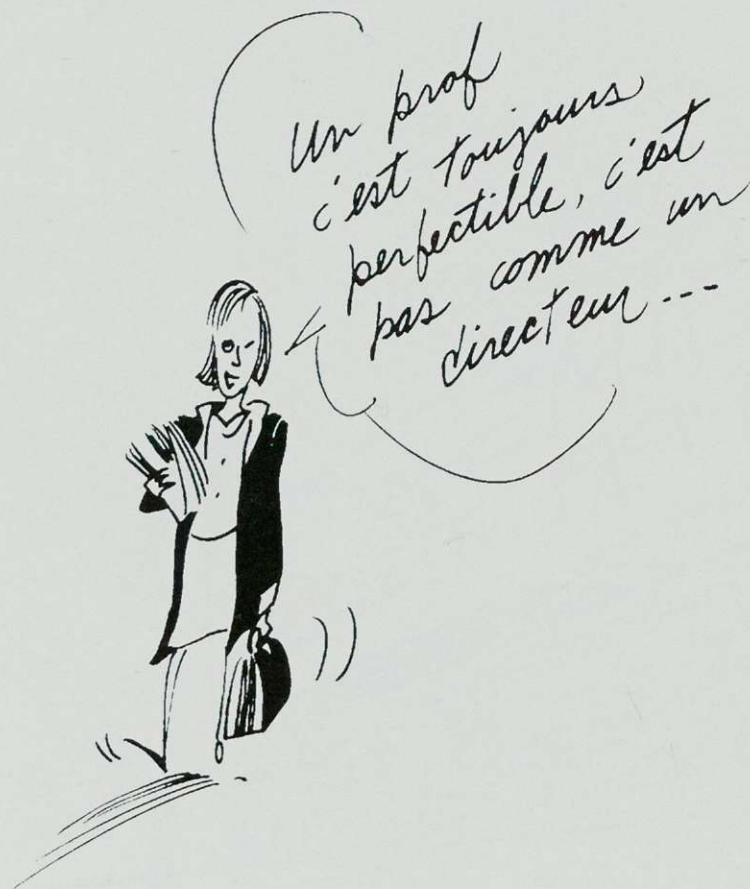 Un prof
c'est toujours
perfectible, c'est
pas comme un
directeur...